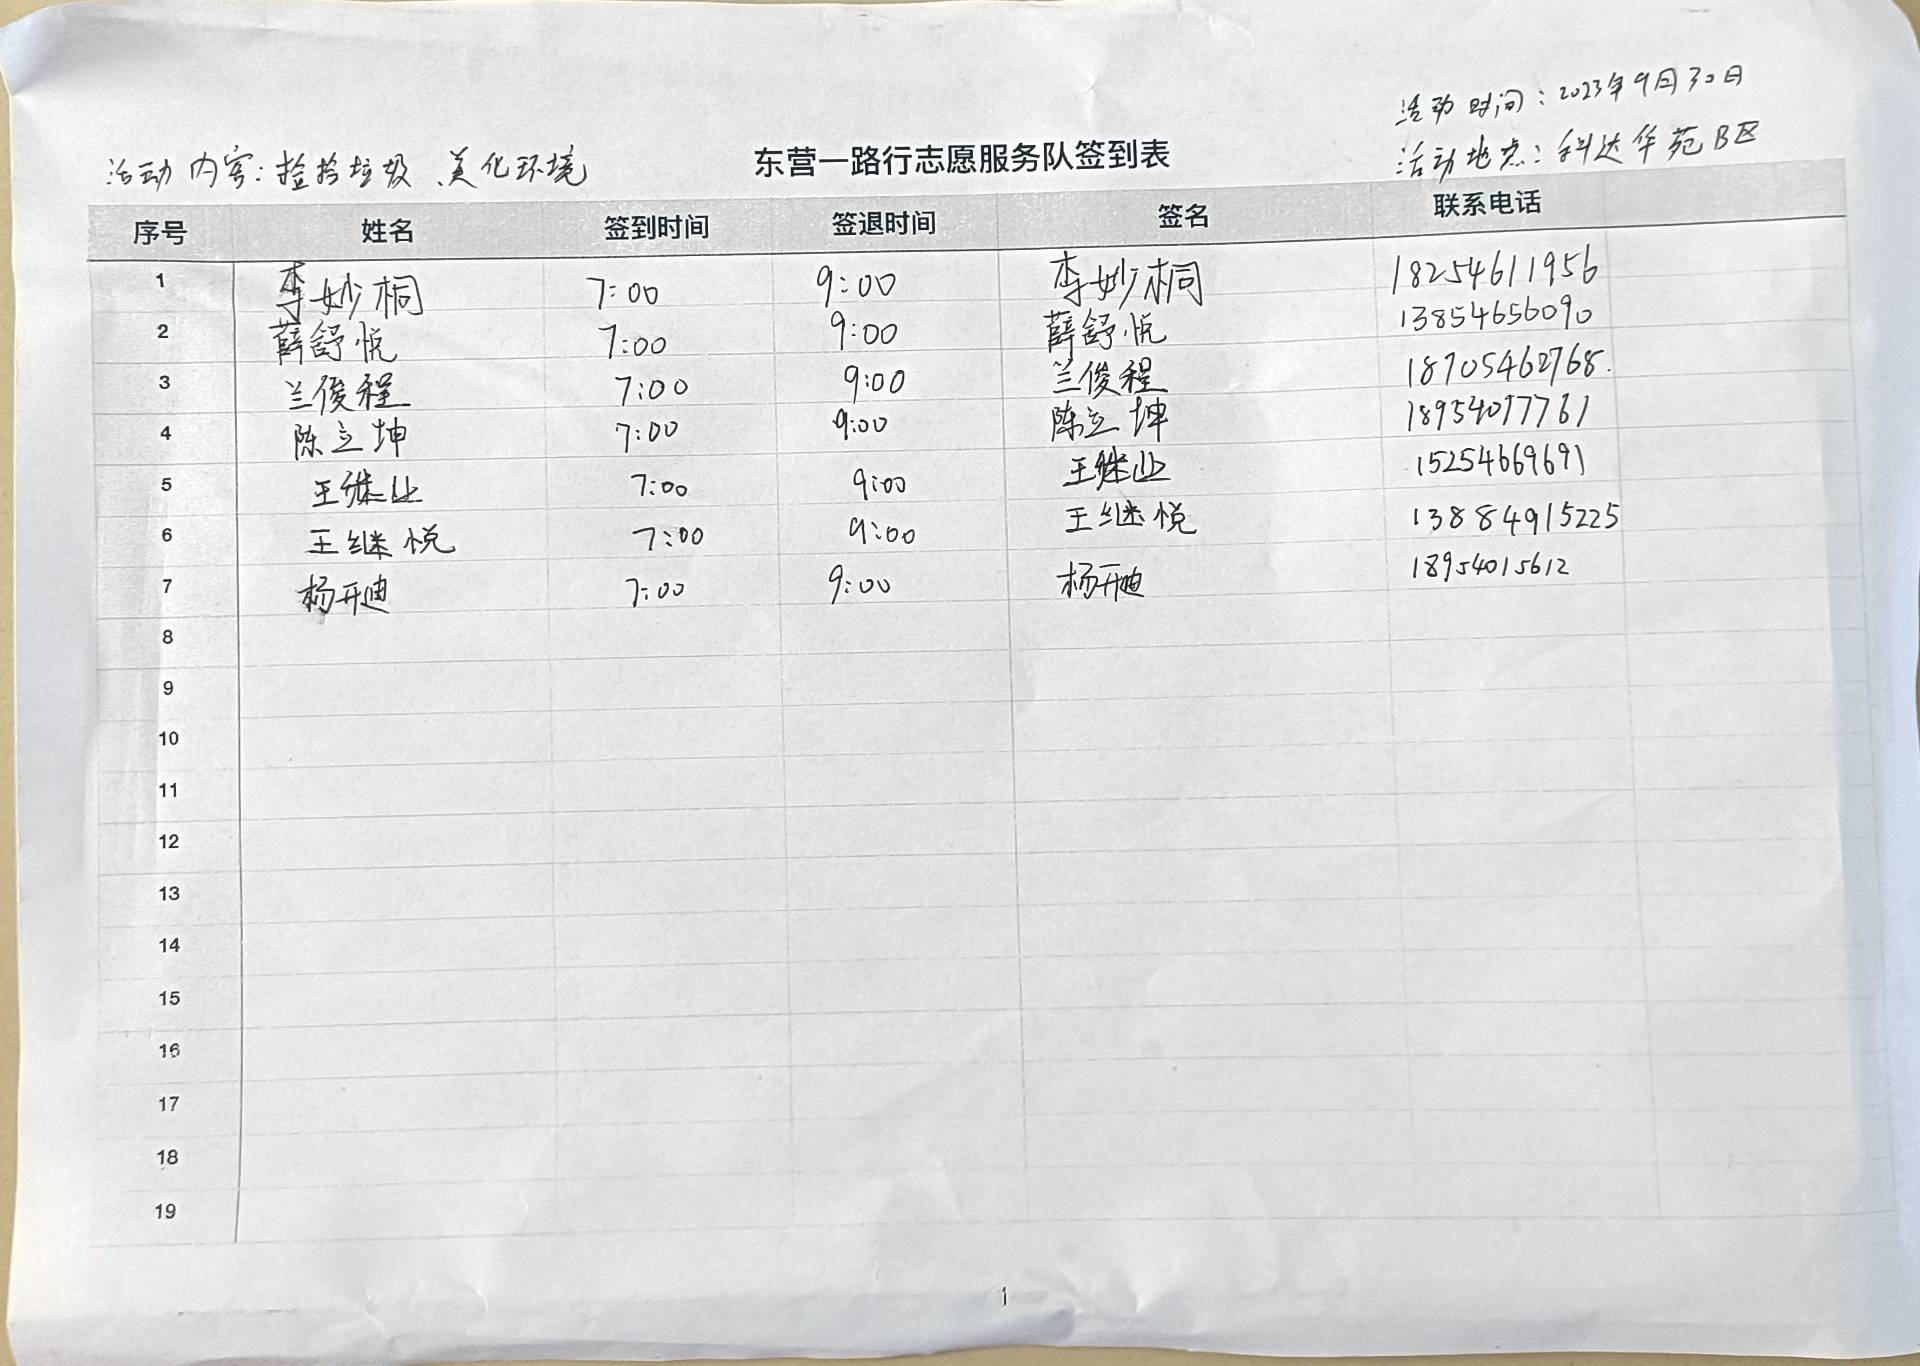 活动时间：2023年9月30日
活动内容：捡拾垃圾 美化环境 东营一路行志愿服务队签到表 活动地点：科达华苑B区
序号 姓名 签到时间 签退时间 签名 联系电话
1 李妙桐 7:00 9:00 李妙桐 18254611956
2 薛舒悦 7:00 9:00 薛舒悦 13854656090
3 兰俊程 7:00 9:00 兰俊程 18705462768.
4 陈立坤 7:00 9:00 陈立坤 18954077761
5 王继业 7:00 9:00 王继业 15254669691
6 王继悦 7:00 9:00 王继悦 13884915225
7 杨开迪 7:00 9:00 杨开迪 18954015612
8
9
10
11
12
13
14
15
16
17
18
19
1